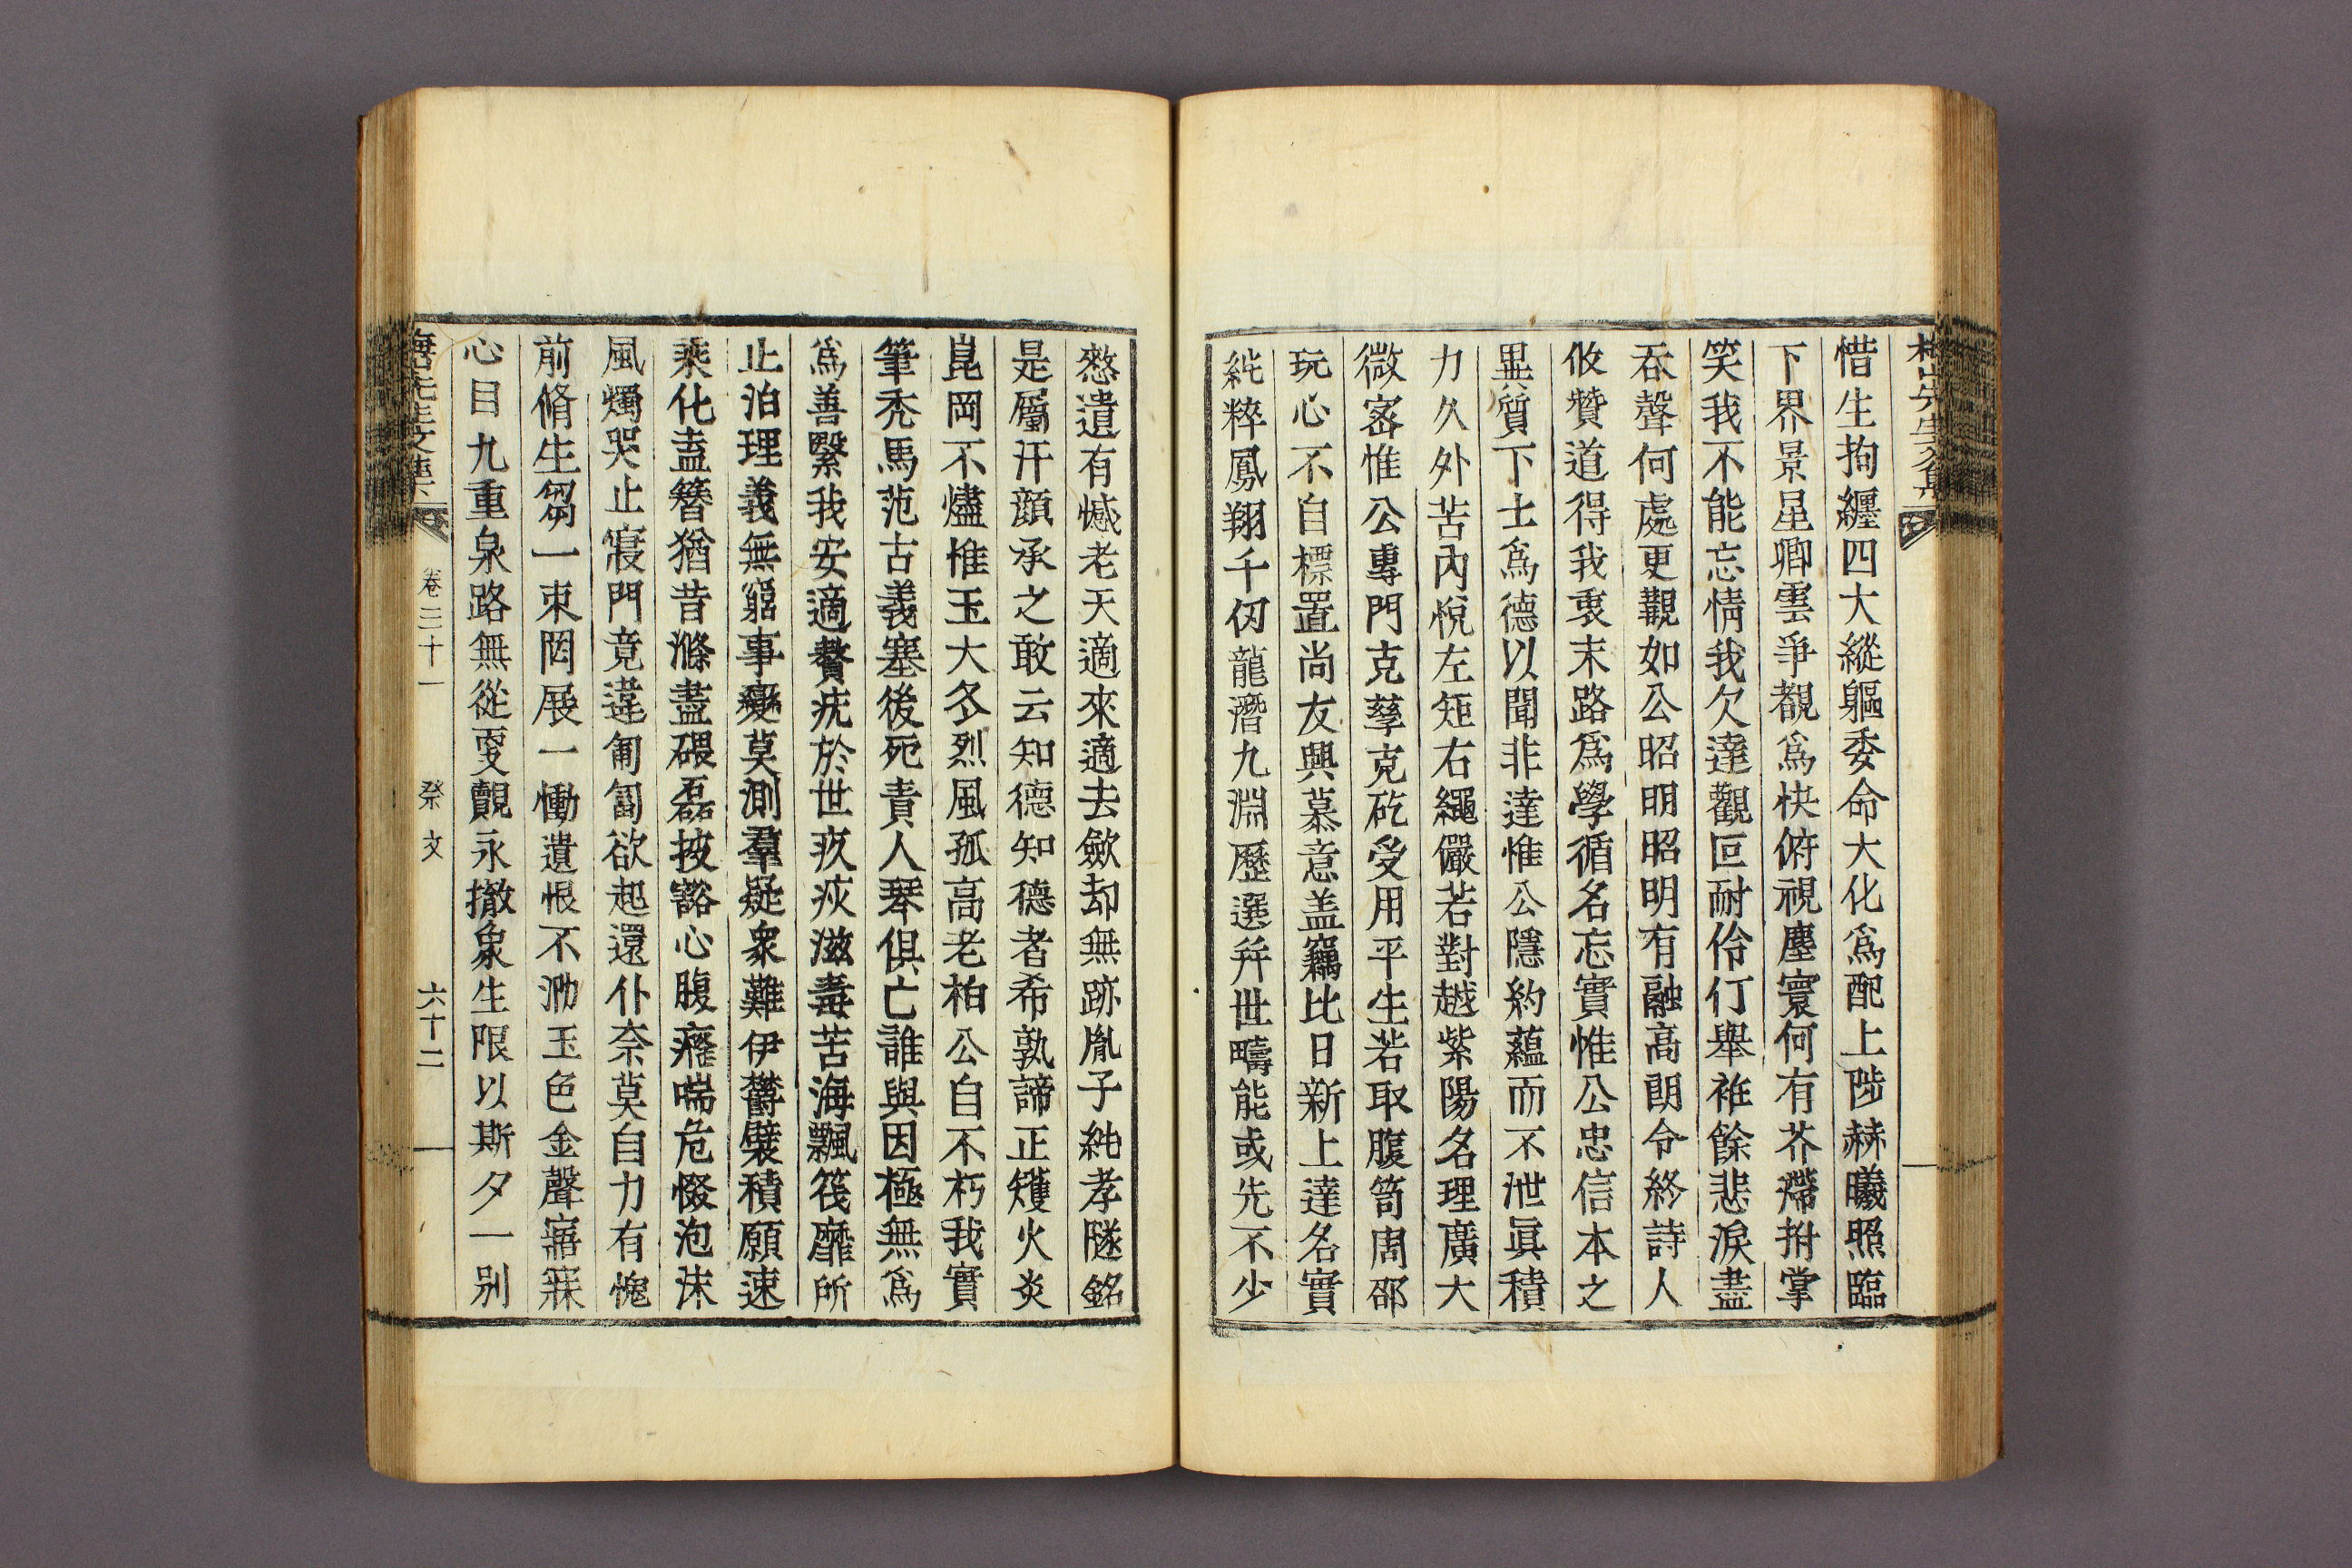 惜生拘纏四大縱軀委命大化爲配上陟赫曦照臨
下界景星卿雲爭覩爲快俯視塵寰何有芥滯拊掌
笑我不能忘情我欠達觀叵耐伶仃舉袵餘悲淚盡
呑聲何處更覯如公昭明昭明有融高朗令終詩人
攸贊道得我衷末路爲學循名忘實惟公忠信本之
異質下士爲德以聞非達惟公隱約蘊而不泄眞積
力久外苦內悅左矩右繩儼若對越紫陽名理廣大
微密惟公專門克孳克矻受用平生若取腹笥周邵
玩心不自標置尙友興慕意盖竊比日新上達名實
純粹鳳翔千仞龍潛九淵歷選幷世疇能或先不少
憖遺有憾老天適來適去斂却無跡胤子純孝隧銘
是屬汗顔承之敢云知德知德者希孰諦正矱火炎
崑岡不燼惟玉大冬烈風孤高老柏公自不朽我實
筆禿馬范古義塞後死責人琴俱亡誰與因極無爲
爲善緊我安適贅疣於世疚疢滋毒苦海飄筏靡所
止泊理義無窮事變莫測羣疑衆難伊欝襞積願速
乘化盍簪猶昔滌盡磈磊披豁心腹癃喘危惙泡沫
風燭哭止寢門竟違匍匐欲起還仆奈莫自力有愧
前脩生芻一束罔展一慟遺恨不泐玉色金聲寤寐
心目九重泉路無從更覿永撤象生限以斯夕一別
卷三十一 祭文 六十二